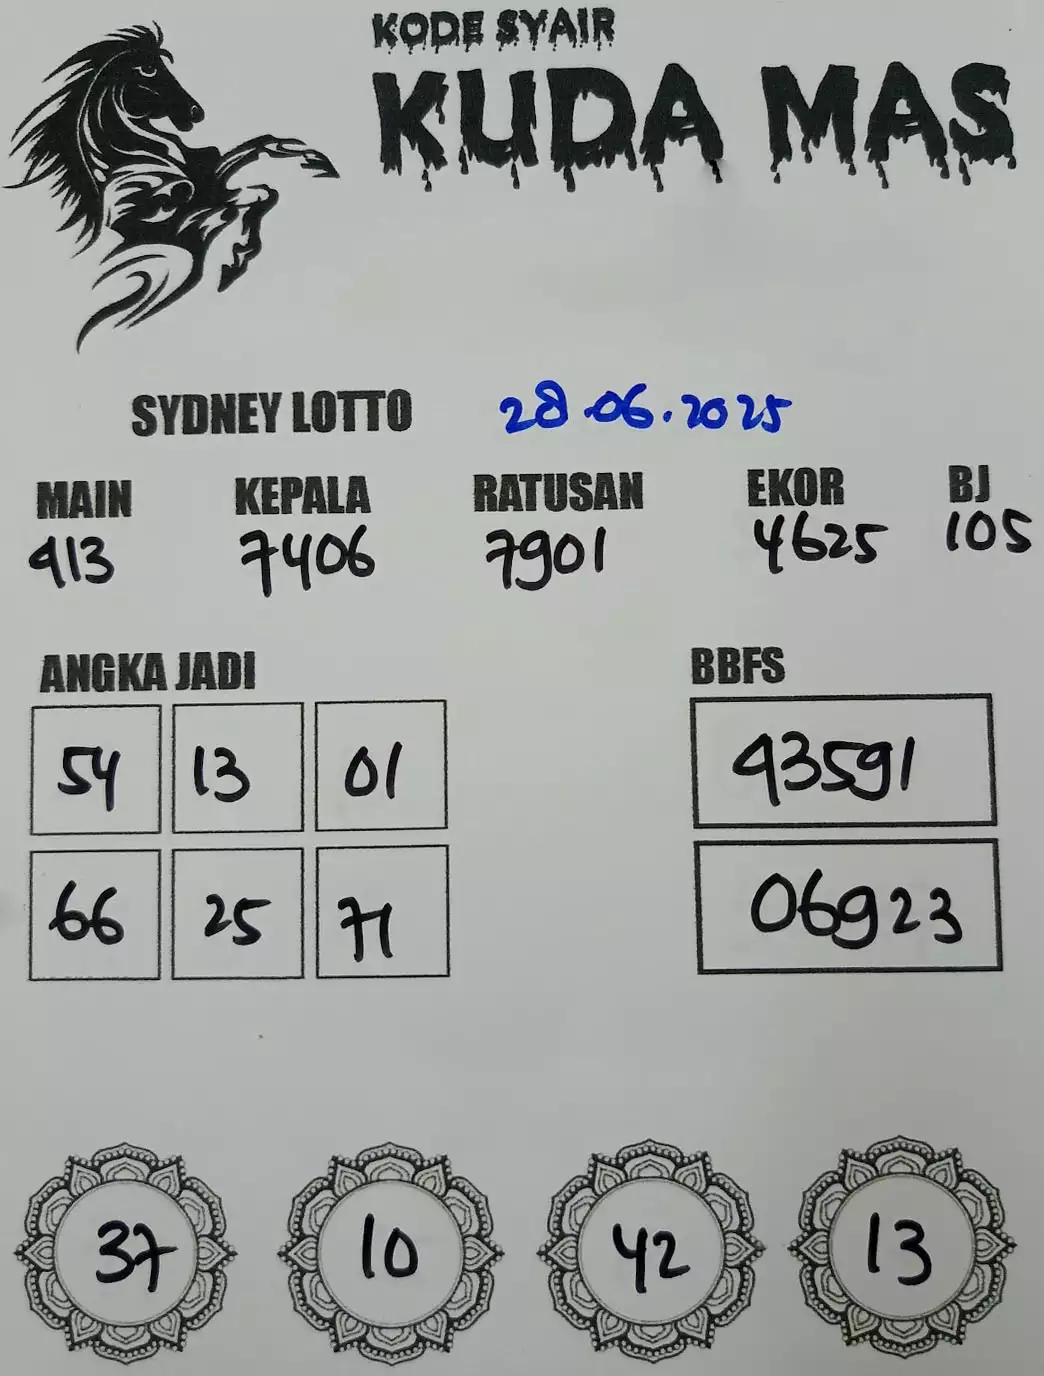 KODE SYAIR
KUDA MAS
SYDNEY LOTTO 28.06.2025
MAIN KEPALA RATUSAN EKOR BJ
913 7406 7901 4625 105
ANGKA JADI BBFS
54 13 01 93591
66 25 71 06923
37 10 42 13